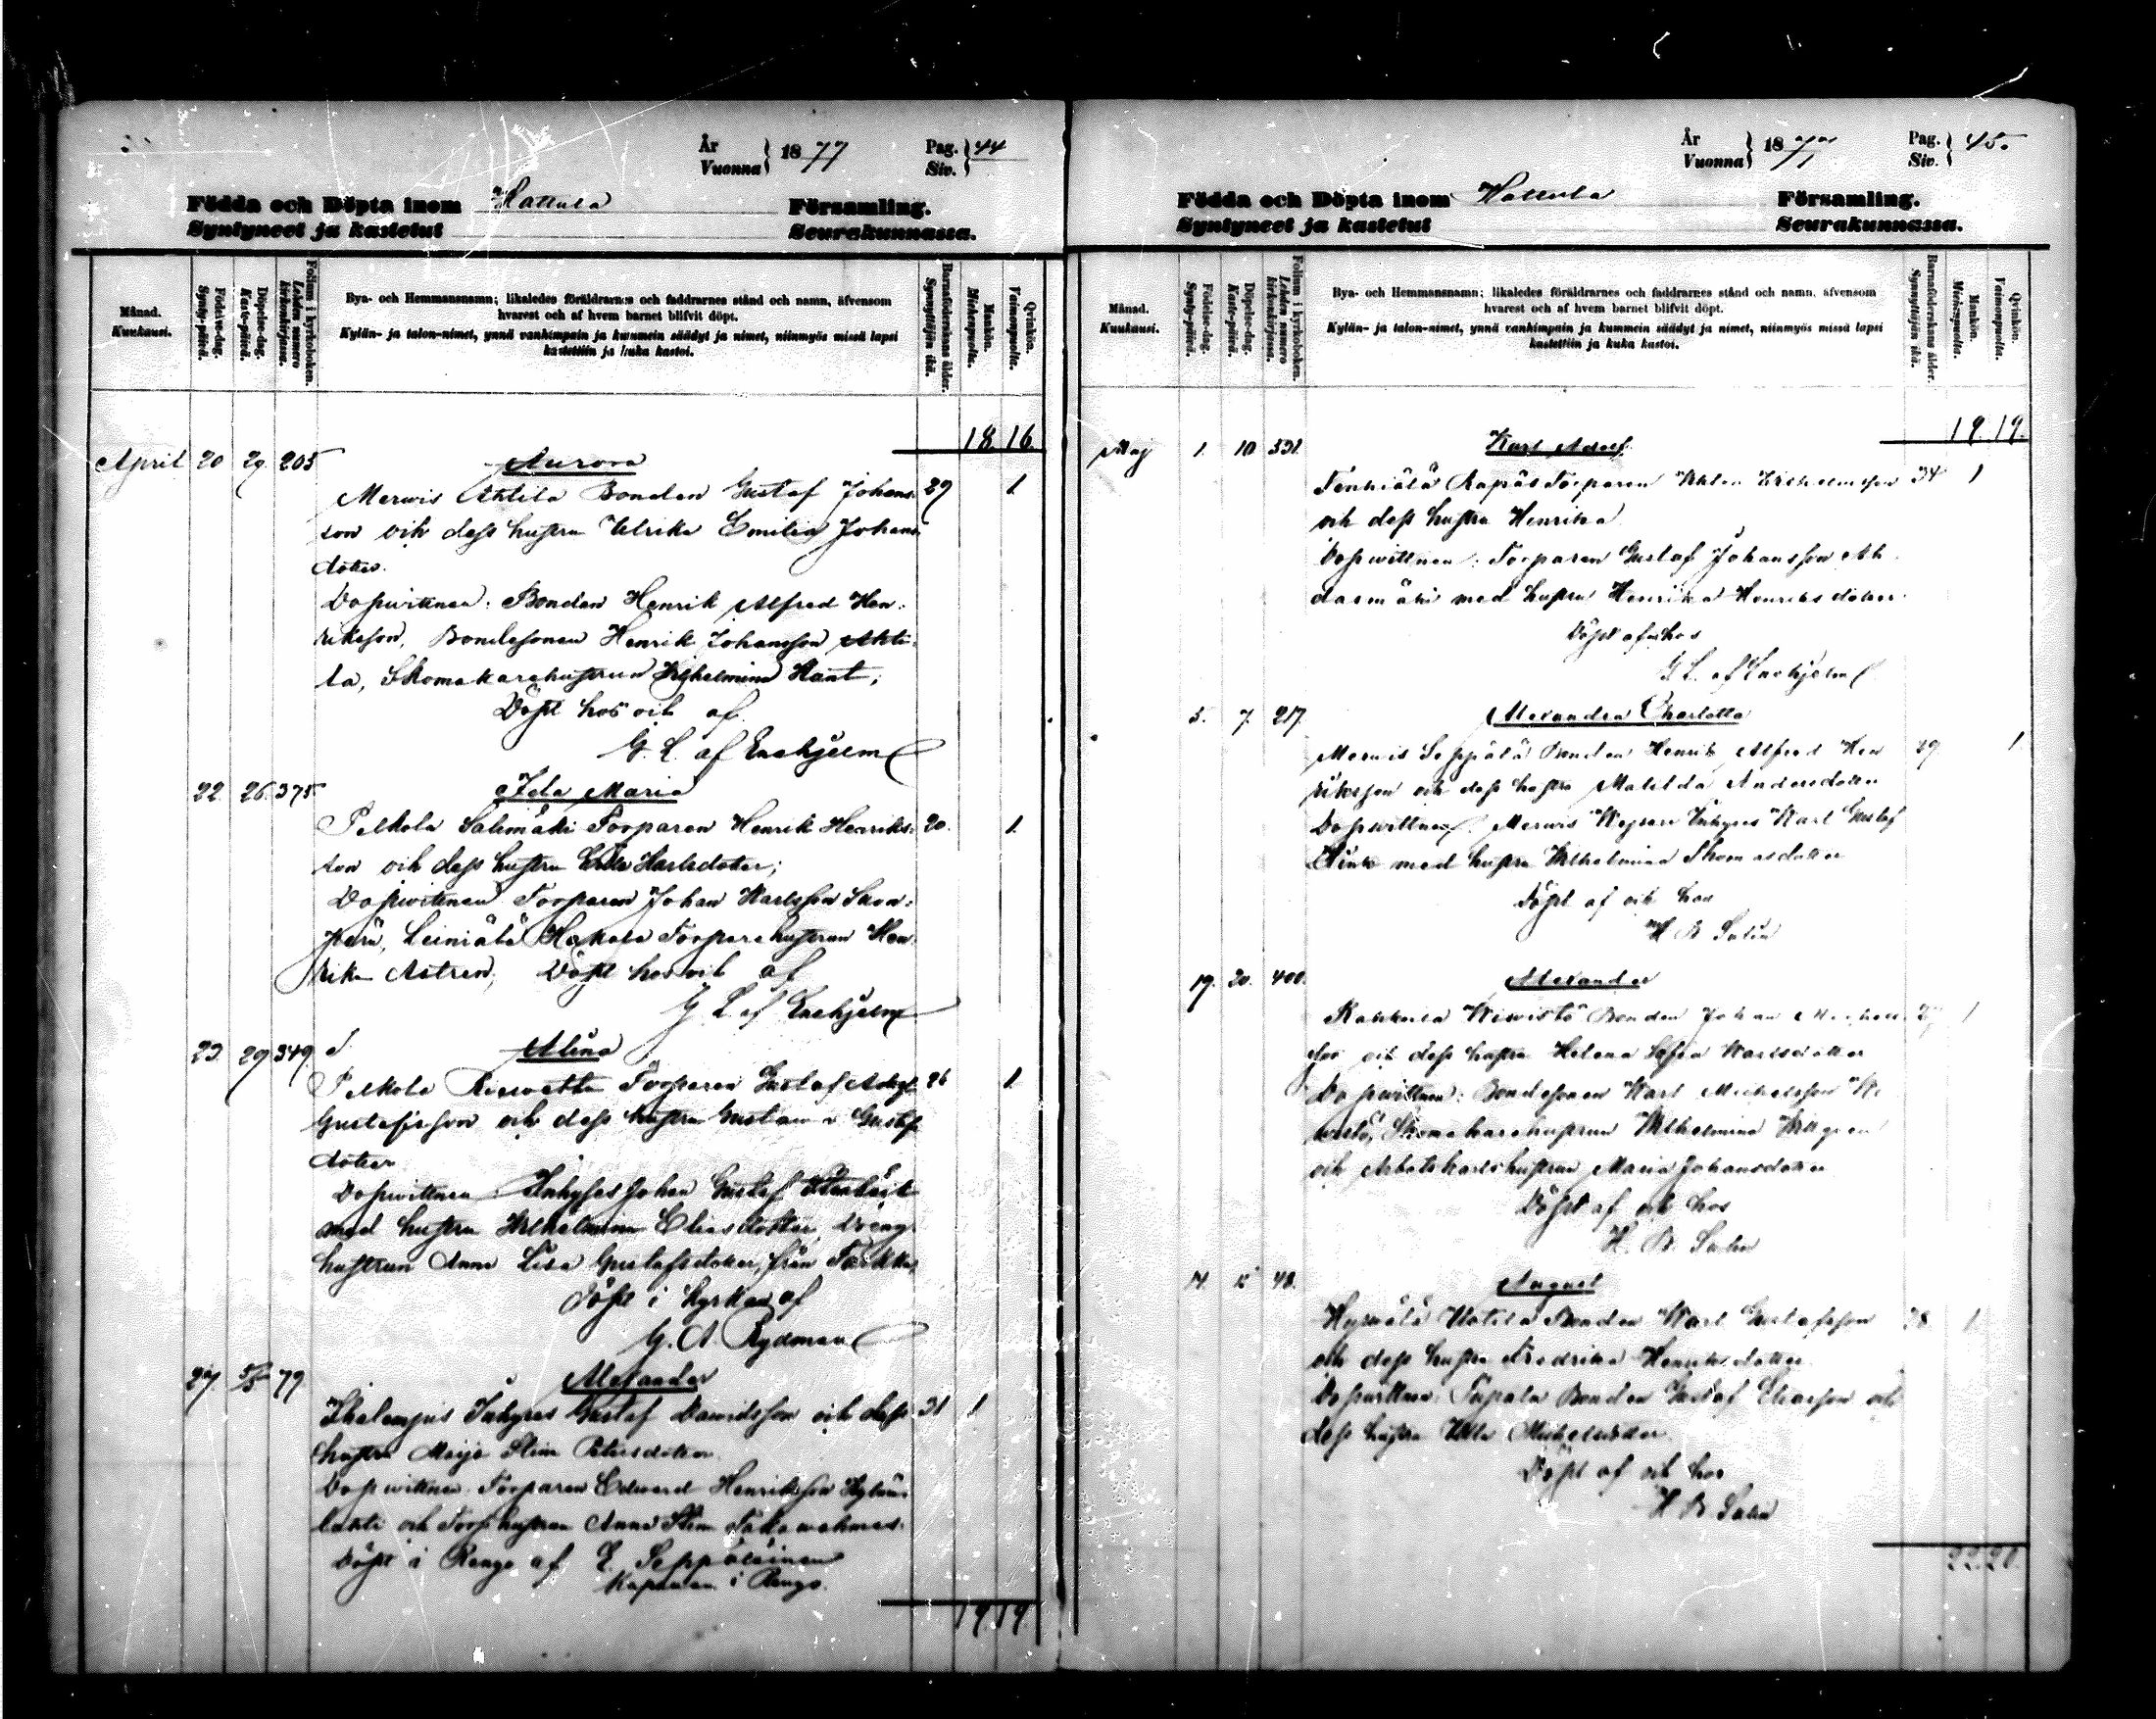 År
Vuonna } 1877
Pag.
Siv. } 44
Födda och Döpta inom Hattula Församling.
Syntyneet ja kastetut Seurakunnassa.
Månad.
Kuukausi.
Födelse-dag.
Synty-päivä.
Döpelse-dag.
Kaste-päivä.
Folium i kyrkoboken.
Lehden numero kirkonkirjassa.
Bya- och Hemmansnamn; likaledes föräldrarnes och faddrarnes stånd och namn, äfvensom
hvarest och af hvem barnet blifvit döpt.
Kylän- ja talon-nimet, ynnä vanhimpain ja kummein säädyt ja nimet, niinmyös missä lapsi
kastettiin ja kuka kastoi.
Barnaföderskans ålder.
Synnyttäjän ikä.
Mankön.
Miehenpuolta.
Qvinkön.
Vaimonpuolta.
18. 16.
April 20 29. 205 Aurora
Merwis Ahtila Bonden Gustaf Johans= 29 1.
son och dess hustru Ulrika Emilia Johans
doter.
Dopwittnen: Bonden Henrik Alfred Hen=
riksson, Bondesonen Henrik Johansson Ahti=
la, Skomakarehustrun Wilhelmina
Döpt hos och af
G. L. af Enehjelm
22. 26. 375. Ida Maria
Pelkola Salimäki Torparen Henrik Henriks= 20. 1.
son och dess hustru Karlsdoter;
Dopwittnen Torparen Johan Karlsson
Leiniälä Hakala Torparehustrun Hen=
rika Döpt hos och af
G L af Enehjelm
23. 29 349. Alina
Pelkola Torparen Gustaf Adolf 26 1.
Gustafsson och dess hustru Gustava Gustafs
doter
Dopwittnen: Inhyses Johan Gustaf
med hustru Wilhelmina Eliasdotter, Dräng=
hustrun Anna Lisa Gustafsdoter, från
Döpt i kyrkan af
G. A. Rydman
27. 5/5 79 Alexander
Inhyses Gustaf Davidsson och dess 31 1
hustru Maija Stina
Dopwittnen Torparen Edward Henriksson
och Torp. hustrun Anna Stina
Döpt i Rengo af E. Seppäläinen
Kapellan i Rengo.
19. 19.
År
Vuonna } 1877
Pag.
Siv. } 45.
Födda och Döpta inom Hattula Församling.
Syntyneet ja kastetut Seurakunnassa.
Månad.
Kuukausi.
Födelse-dag.
Synty-päivä.
Döpelse-dag.
Kaste-päivä.
Folium i kyrkoboken.
Lehden numero kirkonkirjassa.
Bya- och Hemmansnamn; likaledes föräldrarnes och faddrarnes stånd och namn, äfvensom
hvarest och af hvem barnet blifvit döpt.
Kylän- ja talon-nimet, ynnä vanhimpain ja kummein säädyt ja nimet, niinmyös missä lapsi
kastettiin ja kuka kastoi.
Barnaföderskans ålder.
Synnyttäjän ikä.
Mankön.
Miehenpuolta.
Qvinkön.
Vaimonpuolta.
19. 19.
Maj 1. 10 331. Karl Adolf
Tenhiälä Torparen Wilhelmsson 34 1
och dess hustru Henrika
Dopwittnen: Torparen Gustaf Johansson
med hustru Henrika Henriksdoter.
Döpt af och hos
G L. af Enehjelm
5. 7. 217. Alexandra Charlotta
Merwis Seppälä Bonden Henrik Alfred Hen 29 1
riksson och dess hustru Matilda Andersdotter
Dopwittnen: Merwis Inhyses Karl Gustaf
med hustru Wilhelmina Thomasdotter
Döpt af och hos
H B Salin
19. 20. 400. Alexander
Bonden Johan 1
son och dess hustru Helena Sofia Karlsdotter
Dopwittnen: Bondesonen Karl Michelsson
Skomakarehustrun Wilhelmina
och Arbetskarlshustrun Maria Johansdotter
Döpt af och hos
H. B. Salin
14. 48. August
Bonden Karl Gustafsson 1
och dess hustru Fredrika Henriksdotter
Dopwittnen: Bonden Gustaf Eliasson och
dess hustru Ulla Michelsdotter
Döpt af och hos
H B Salin
22. 20